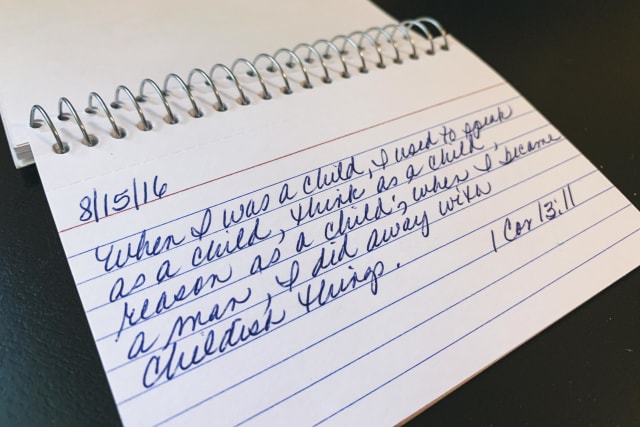 8/15/16
When I was a child, I used to speak
as a child, think as a child,
reason as a child; when I became
a man, I did away with
childish things.
1 Cor 13:11